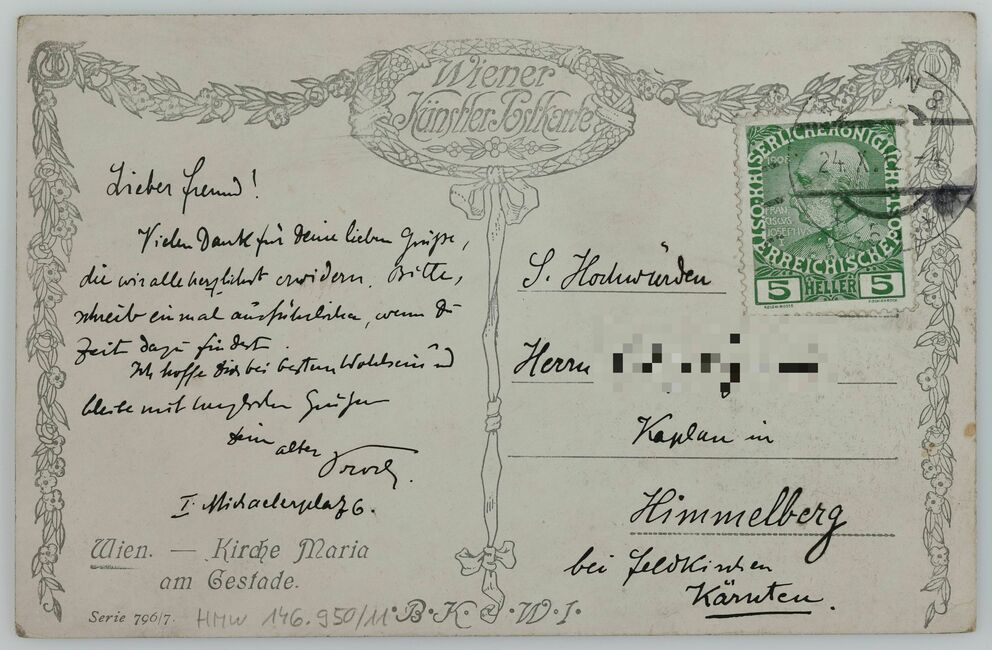 Wiener
Künstler Postkarte
Lieber Freund!
Vielen Dank für Deine lieben Grüße,
die wir alle herzlichst erwidern. Bitte,
schreib einmal ausführlicher, wenn Du
Zeit dazu findest.
Ich hoffe Dich bei bestem Wohlsein und
bleibe mit herzlichen Grüßen
Dein
alter
I. Michaelerplatz 6.
Wien. — Kirche Maria
am Gestade.
Serie 796/7.
HMW 146.950/11
B·K·W·I·
S. Hochwürden
Herrn
Kaplan in
Himmelberg
bei Feldkirchen
Kärnten.
KAISERLICHE KÖNIGLICHE
ÖSTERREICHISCHE
1908
FRAN
CISCVS
JOSEPHVS
I
5 HELLER 5
24.X.